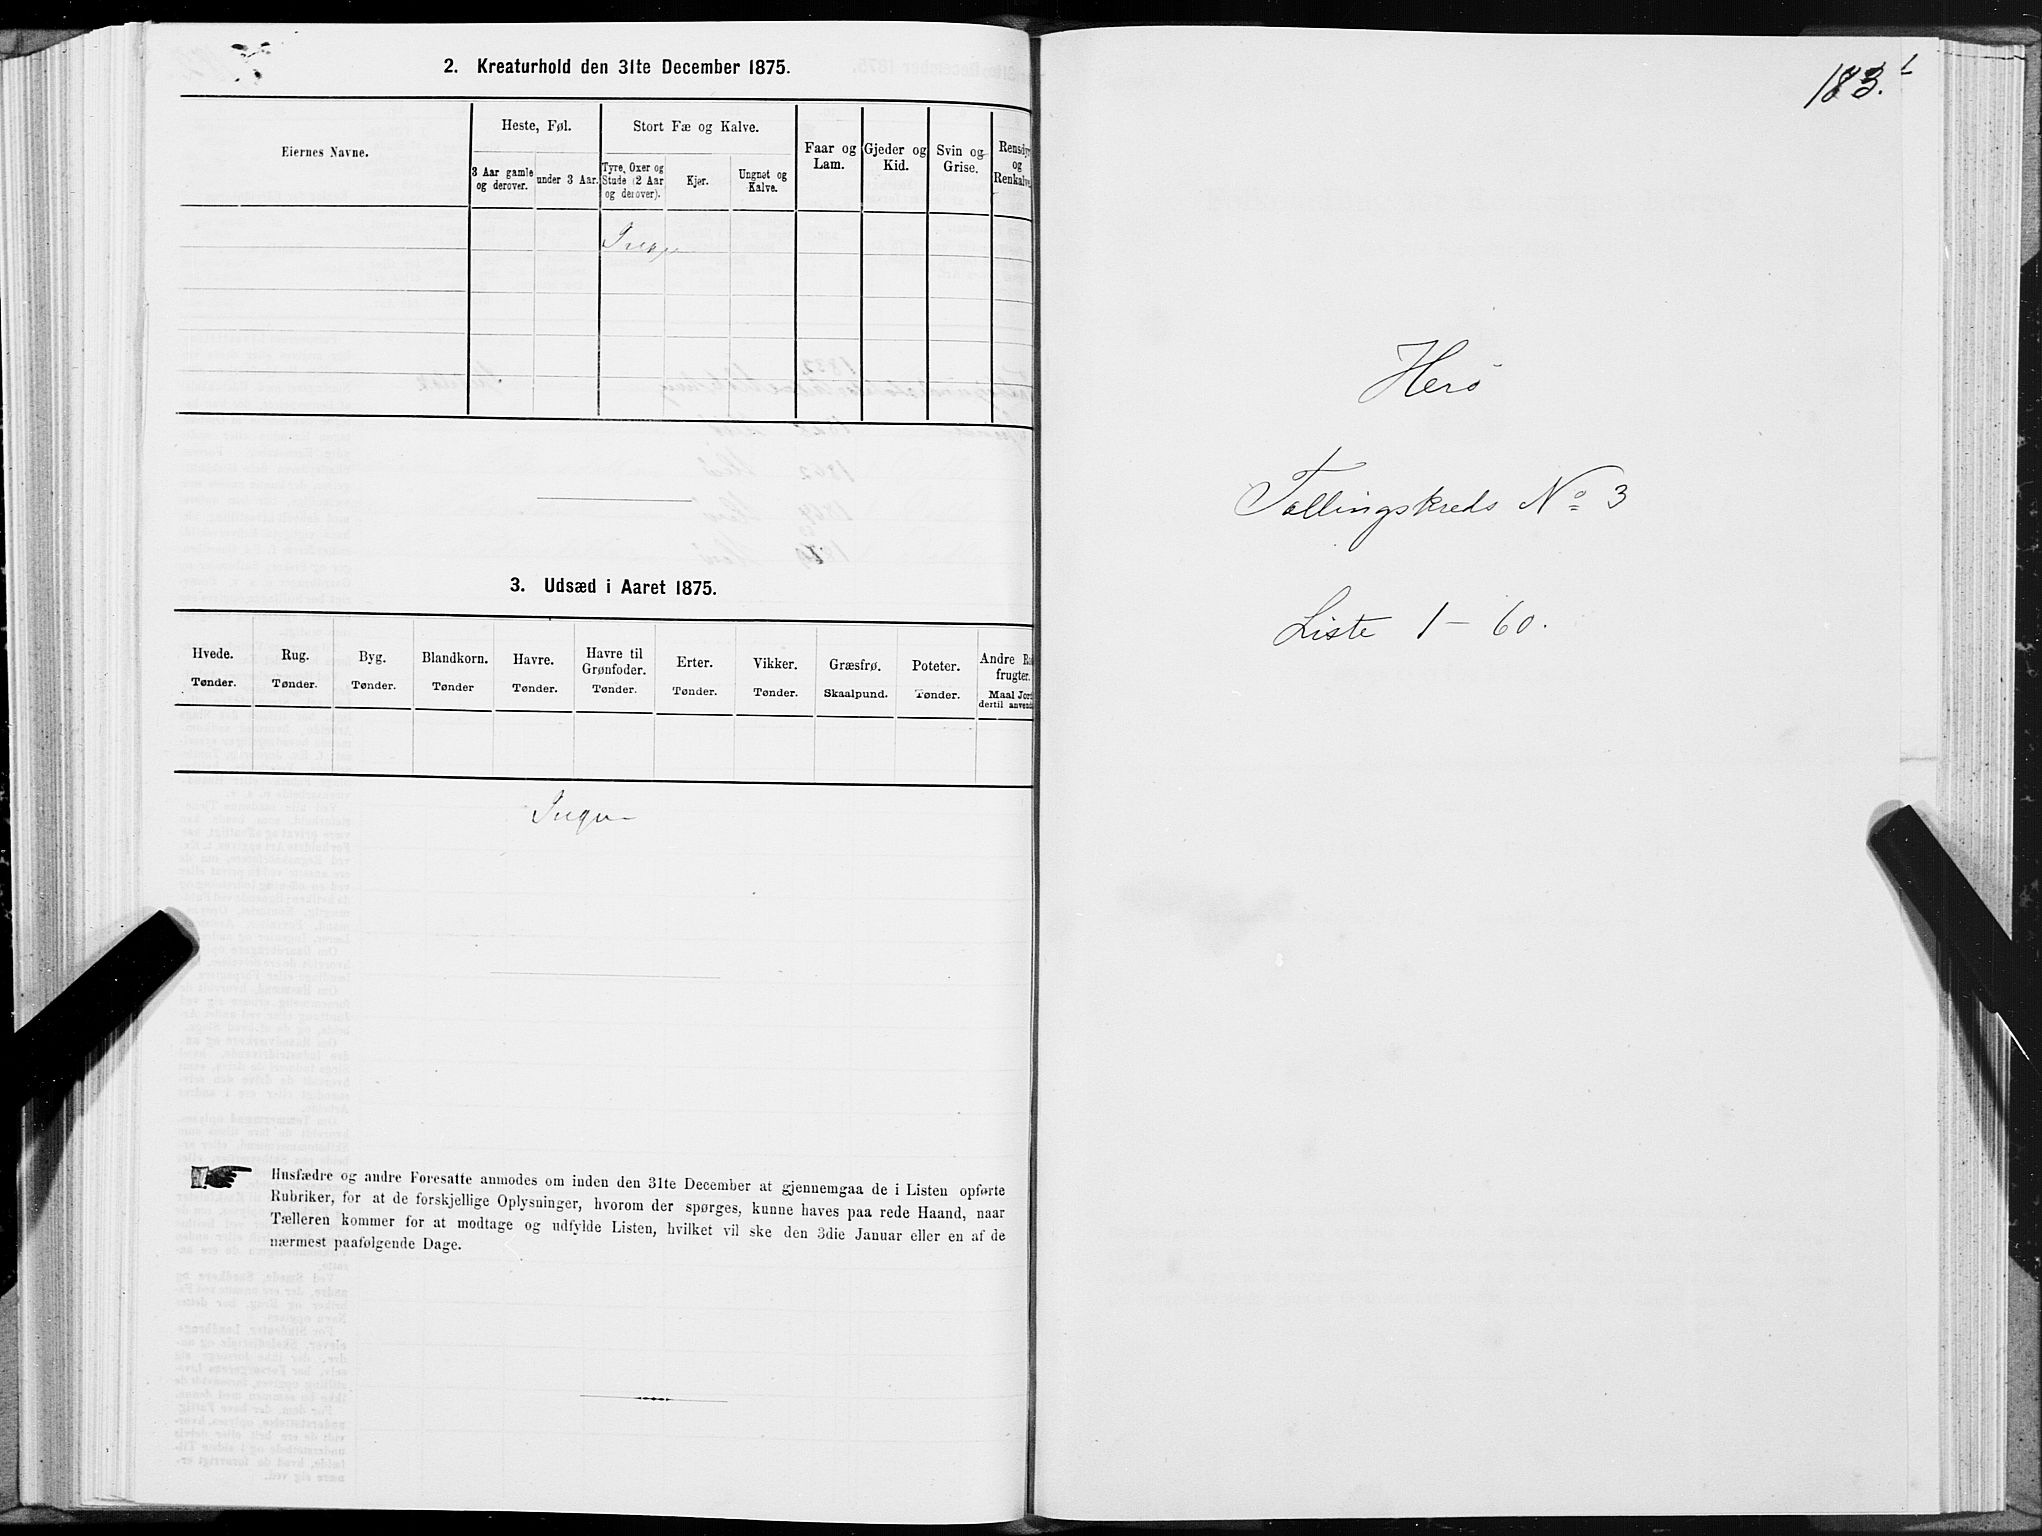 2. Kreaturhold den 31te December 1875.
Eiernes Navne.
Heste, Føl.
3 Aar gamle og derover.
under 3 Aar.
Stort Fæ og Kalve.
Tyre, Oxer og Stude (2 Aar og derover).
Kjør.
Ungnøt og Kalve.
Faar og Lam.
Gjeder og Kid.
Svin og Grise.
Rensdyr og Renkalve
Ingen
3. Udsæd i Aaret 1875.
Hvede.
Tønder.
Rug.
Tønder.
Byg.
Tønder.
Blandkorn.
Tønder
Havre.
Tønder.
Havre til Grønfoder.
Tønder.
Erter.
Tønder.
Vikker.
Tønder.
Græsfrø.
Skaalpund.
Poteter.
Tønder.
Andre
frugter.
Maal Jord
dertil anvendt
Ingen
Husfædre og andre Foresatte anmodes om inden den 31te December at gjennemgaa de i Listen opførte
Rubriker, for at de forskjellige Oplysninger, hvorom der spørges, kunne haves paa rede Haand, naar
Tælleren kommer for at modtage og udfylde Listen, hvilket vil ske den 3die Januar eller en af de
nærmest paafølgende Dage.
183.1
Herö
Tællingskreds No 3
Liste 1 – 60.